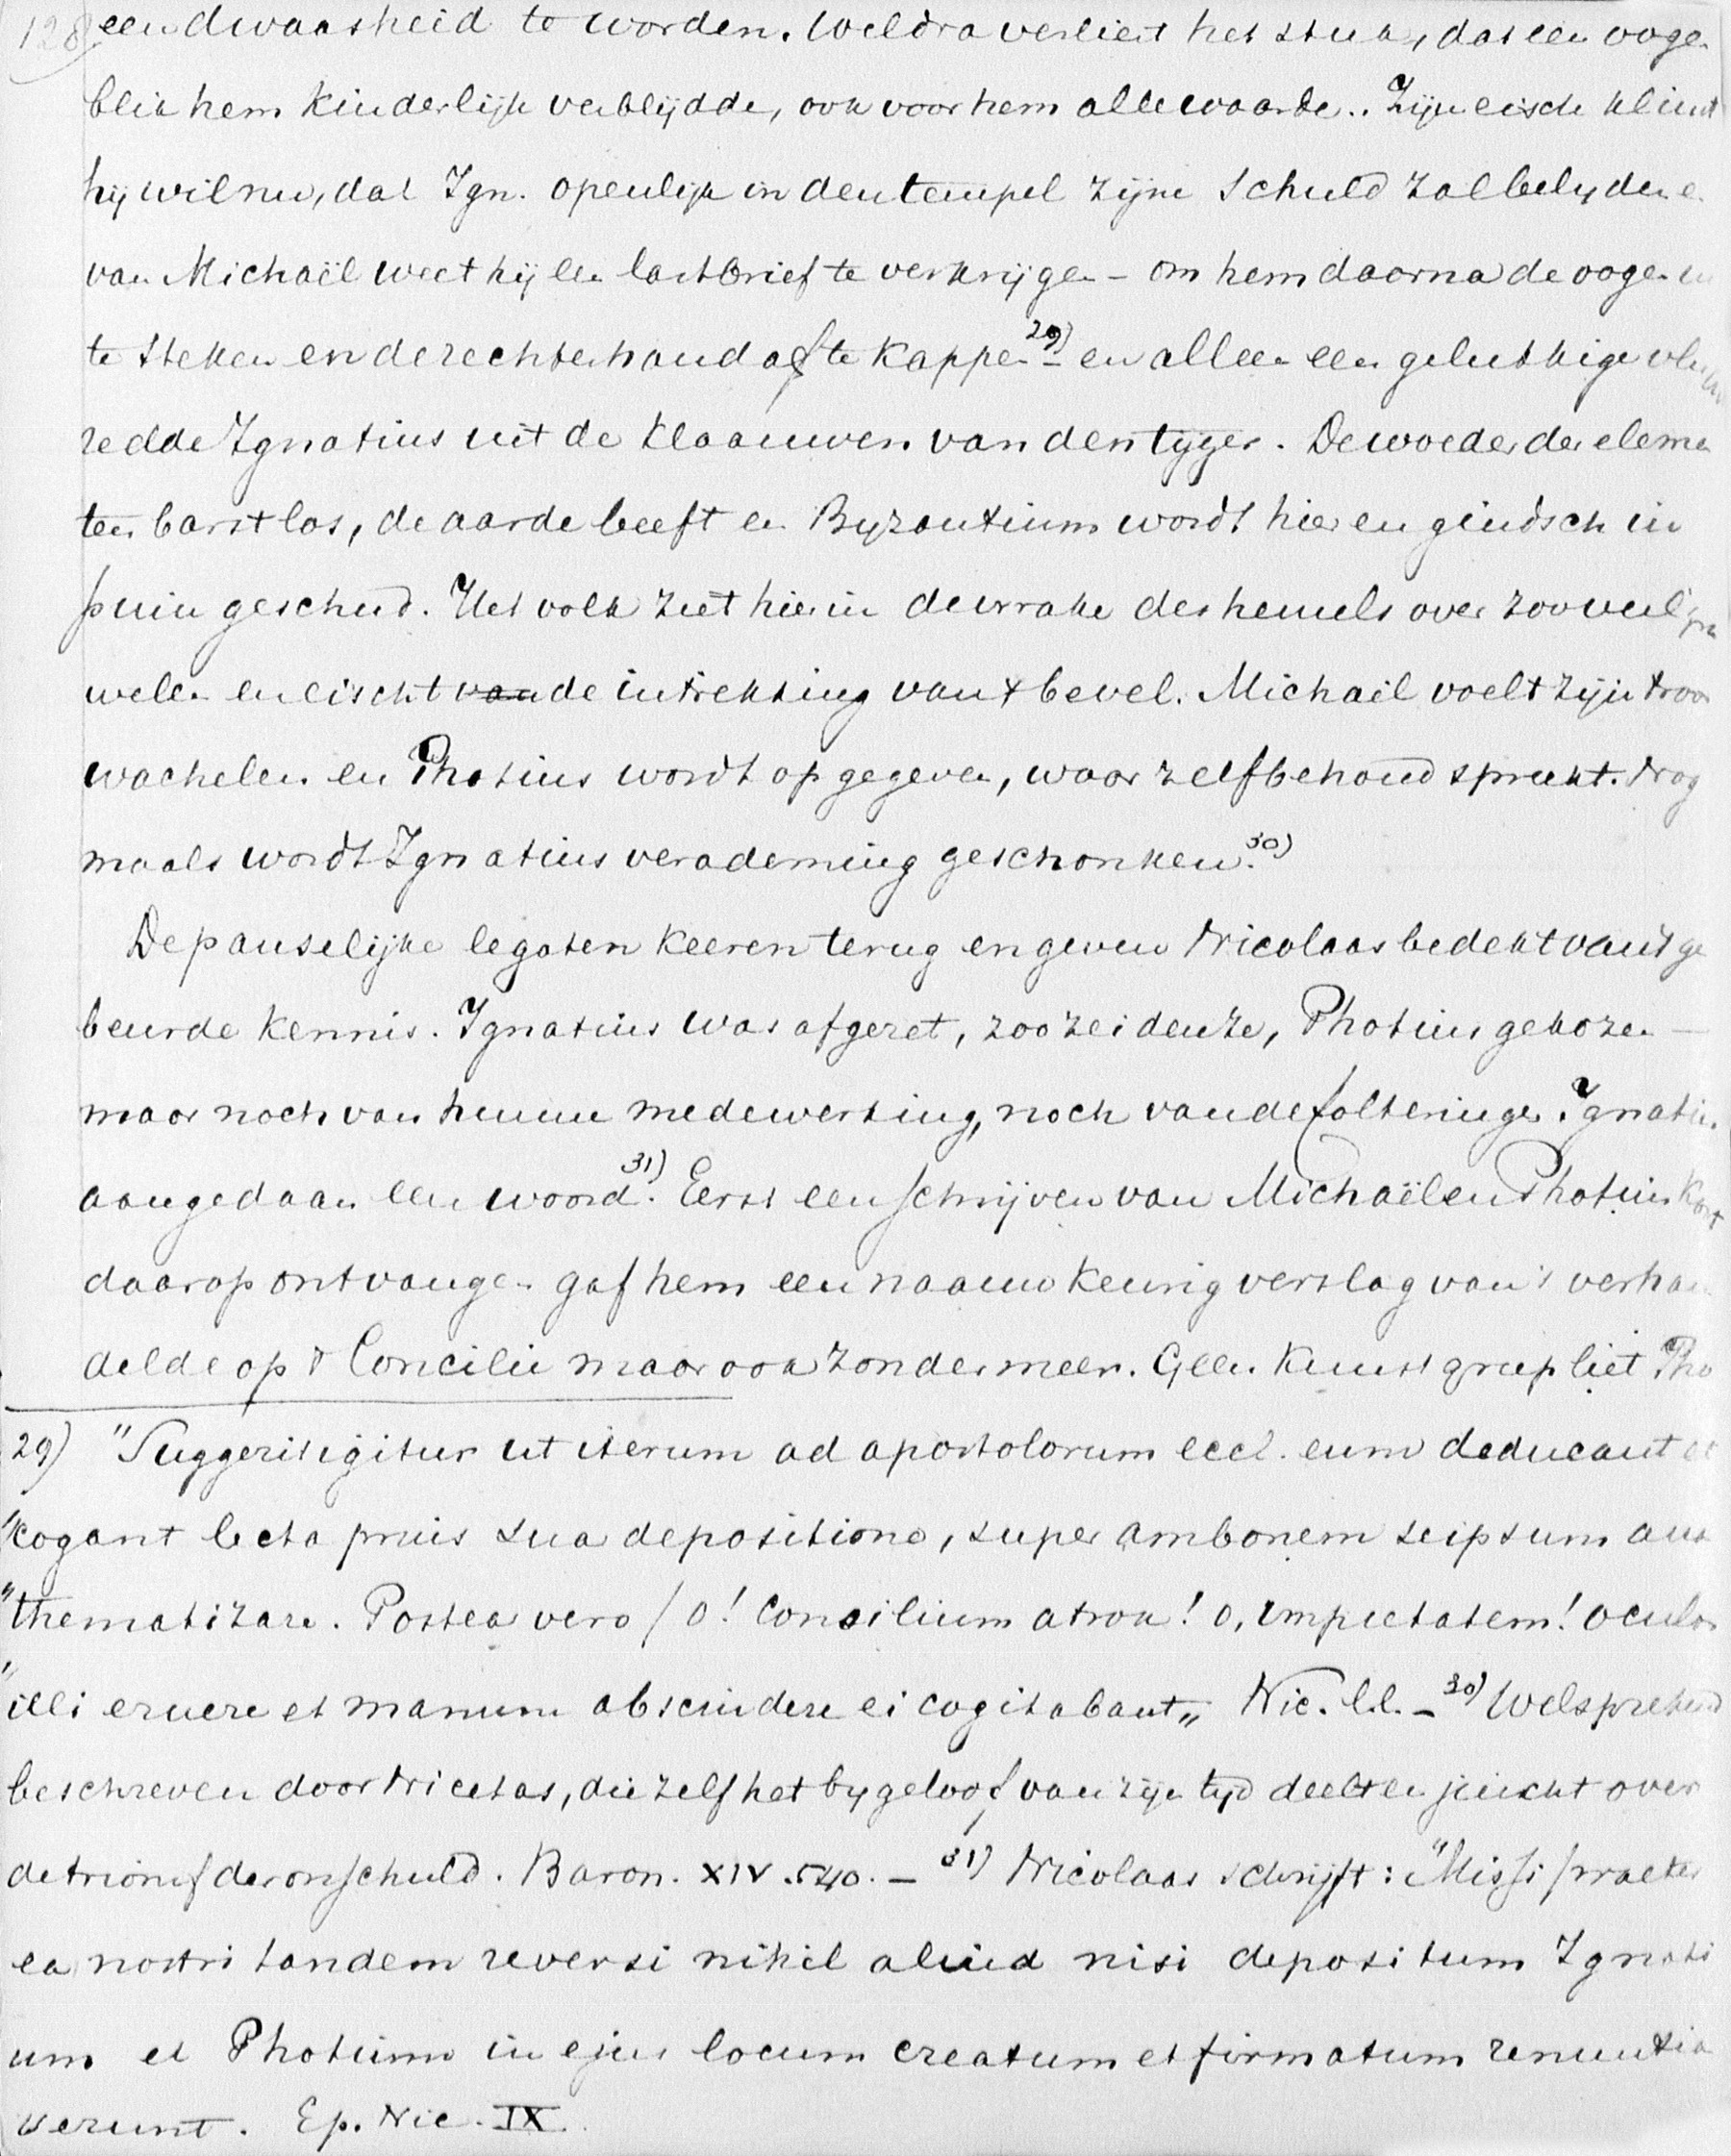 128 een dwaasheid te worden. Weldra verliest het stuk, dat een ooge-
blik hem kinderlijk verblijdde, ook voor hem alle waarde.. Zijn eisch klimt
hij wil nu, dat Ign. openlijk in den tempel zijne schuld zal belyden e.
van Michaël weet hij een lastbrief te verkrijgen – om hem daarna de oogen
te steken en de rechterhand af te kappen 29) – en alleen een gelukkige vlucht
redde Ignatius uit de klaauwen van den tijger. De woede der eleme
ten barst los, de aarde beeft en Byzantium wordt hier en gindsch in
puin geschud. Het volk ziet hierin de wrake des hemels over zooveel
welen en eischt van de intrekking van 't bevel. Michaël voelt zijn troon
wachelen en Photius wordt op gegeven, waar zelfbehoud spreekt. Nog
maals wordt Ignatius verademing geschonken. 30)
De pauselijke legaten keeren terug en geven Nicolaas bedekt van 't ge
beurde kennis. Ignatius was afgezet, zoo zeiden ze, Photius gekozen –
maar noch van hunne medewerking, noch van de folteringen Ignatius
aangedaan een woord. 31) Eerst een schrijven van Michaël en Photius kort
daarop ontvangen gaf hem een naauwkeurig verslag van 't verhan
delde op 't Concilie maar ook zonder meer. Geen kunstgreep liet Pho
29) "Suggerit igitur ut iterum ad apostolorum eccl. eum deducant et
"cogant lecta prius sua depositione, super ambonem seipsum ana
"thematizare. Postea vero / o! consilium atrox! o, impietatem! oculos
"illi eruere et manum abscindere ei cogitabant„ Nic. l.l. – 30) Welsprekend
beschreven door Nicetas, die zelf het bygeloof van zijn tyd deelt en juicht over
de triomf der onschuld. Baron. XIV. 540. – 31) Nicolaas schrijft: "Missi praeter
ea nostri tandem reversi nihil aliud nisi depositum Ignati
um et Photium in ejus locum creatum et firmatum renuntia
verunt. Ep. Nic. IX.